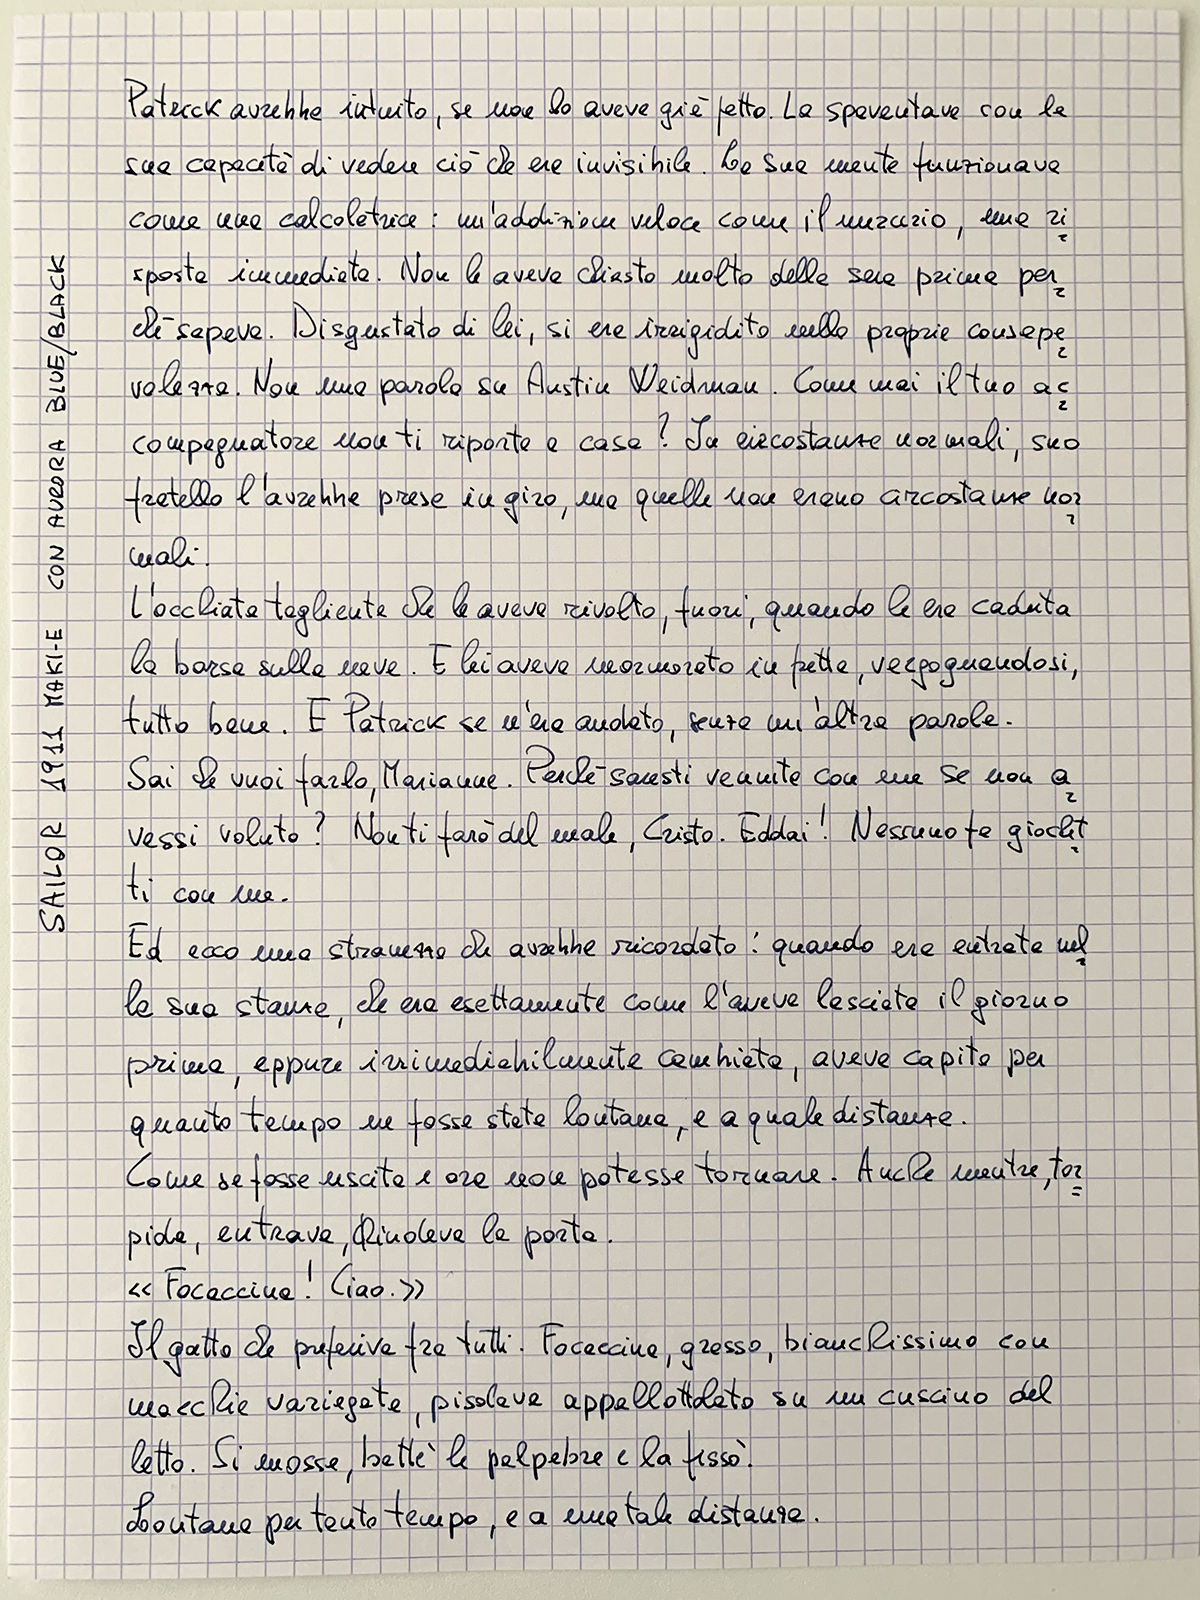 Patrick avrebbe intuito, se non lo aveva già fatto. La spaventava con la
sua capacità di vedere ciò che era invisibile. La sua mente funzionava
come una calcolatrice: un'addizione veloce come il mercurio, una ri=
sposta immediata. Non le aveva chiesto molto della sera prima per=
ché sapeva. Disgustato di lei, si era irrigidito nella propria consape=
volezza. Non una parola su Austin Weidman. Come mai il tuo ac=
compagnatore non ti riporta a casa? In circostanze normali, suo
fratello l'avrebbe presa in giro, ma quelle non erano circostanze nor=
mali.
L'occhiata tagliente che le aveva rivolto, fuori, quando le era caduta
la borsa sulla neve. E lei aveva mormorato in fretta, vergognandosi,
tutto bene. E Patrick se n'era andato, senza un'altra parola.
Sai che vuoi farlo, Marianne. Perché saresti venuta con me se non a=
vessi voluto? Non ti farò del male, Cristo. Eddai! Nessuno fa giochet=
ti con me.
Ed ecco una stranezza che avrebbe ricordato: quando era entrata nel=
la sua stanza, che era esattamente come l'aveva lasciata il giorno
prima, eppure irrimediabilmente cambiata, aveva capito per
quanto tempo ne fosse stata lontana, e a quale distanza.
Come se fosse uscita e ora non potesse tornare. Anche mentre, tor=
pida, entrava, chiudeva la porta.
«Focaccina! Ciao.»
Il gatto che preferiva fra tutti. Focaccina, grasso, bianchissimo con
macchie variegate, pisolava appallottolato su un cuscino del
letto. Si mosse, battè le palpebre e la fissò.
Lontana per tanto tempo, e a una tale distanza.
SAILOR 1911 MAKI-E CON AURORA BLUE/BLACK